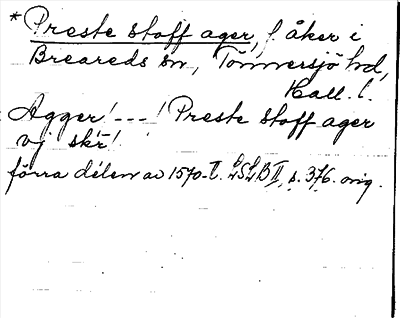 *Preste stoff ager, f. åker i
Breareds sn, Tönnersjö hd,
Hall. l.
Agger! --- ! Preste stoff ager
vj skr!
förra delen av 1570-t. LSLB II, s. 376. orig.